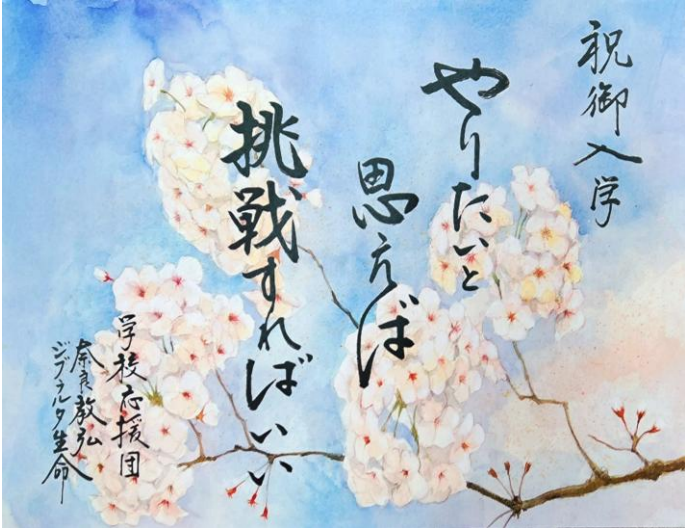 祝御入学
やりたいと
思えば
挑戦すればいい
学校応援団
奈良教弘
ジブラルタ生命